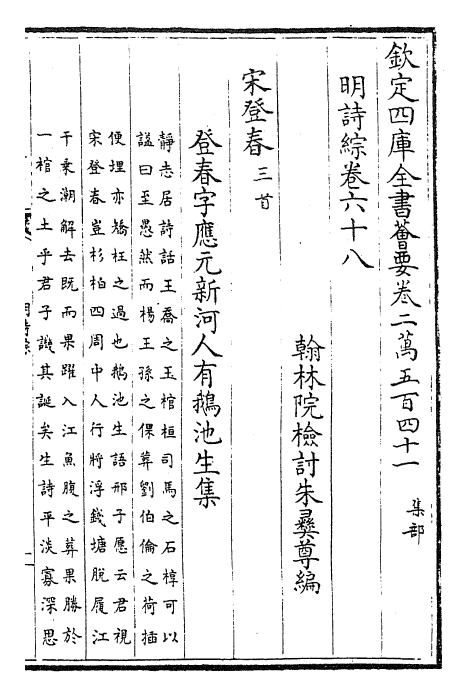 欽定四庫全書薈要卷二萬五百四十一 集部
明詩綜卷六十八
翰林院檢討朱彝尊編
宋登春 三首
登春字應元新河人有鵝池生集
靜志居詩話王喬之玉棺桓司馬之石椁可以
謚曰至愚然而楊王孫之倮葬劉伯倫之荷插
便埋亦矯枉之過也鵝池生語邢子愿云君視
宋登春豈杉柏四周中人行將浮錢塘脫屣江
干乗潮解去既而果躍入江魚腹之葬果勝於
一棺之土乎君子譏其誕矣生詩平淡寡深思
明詩綜
一